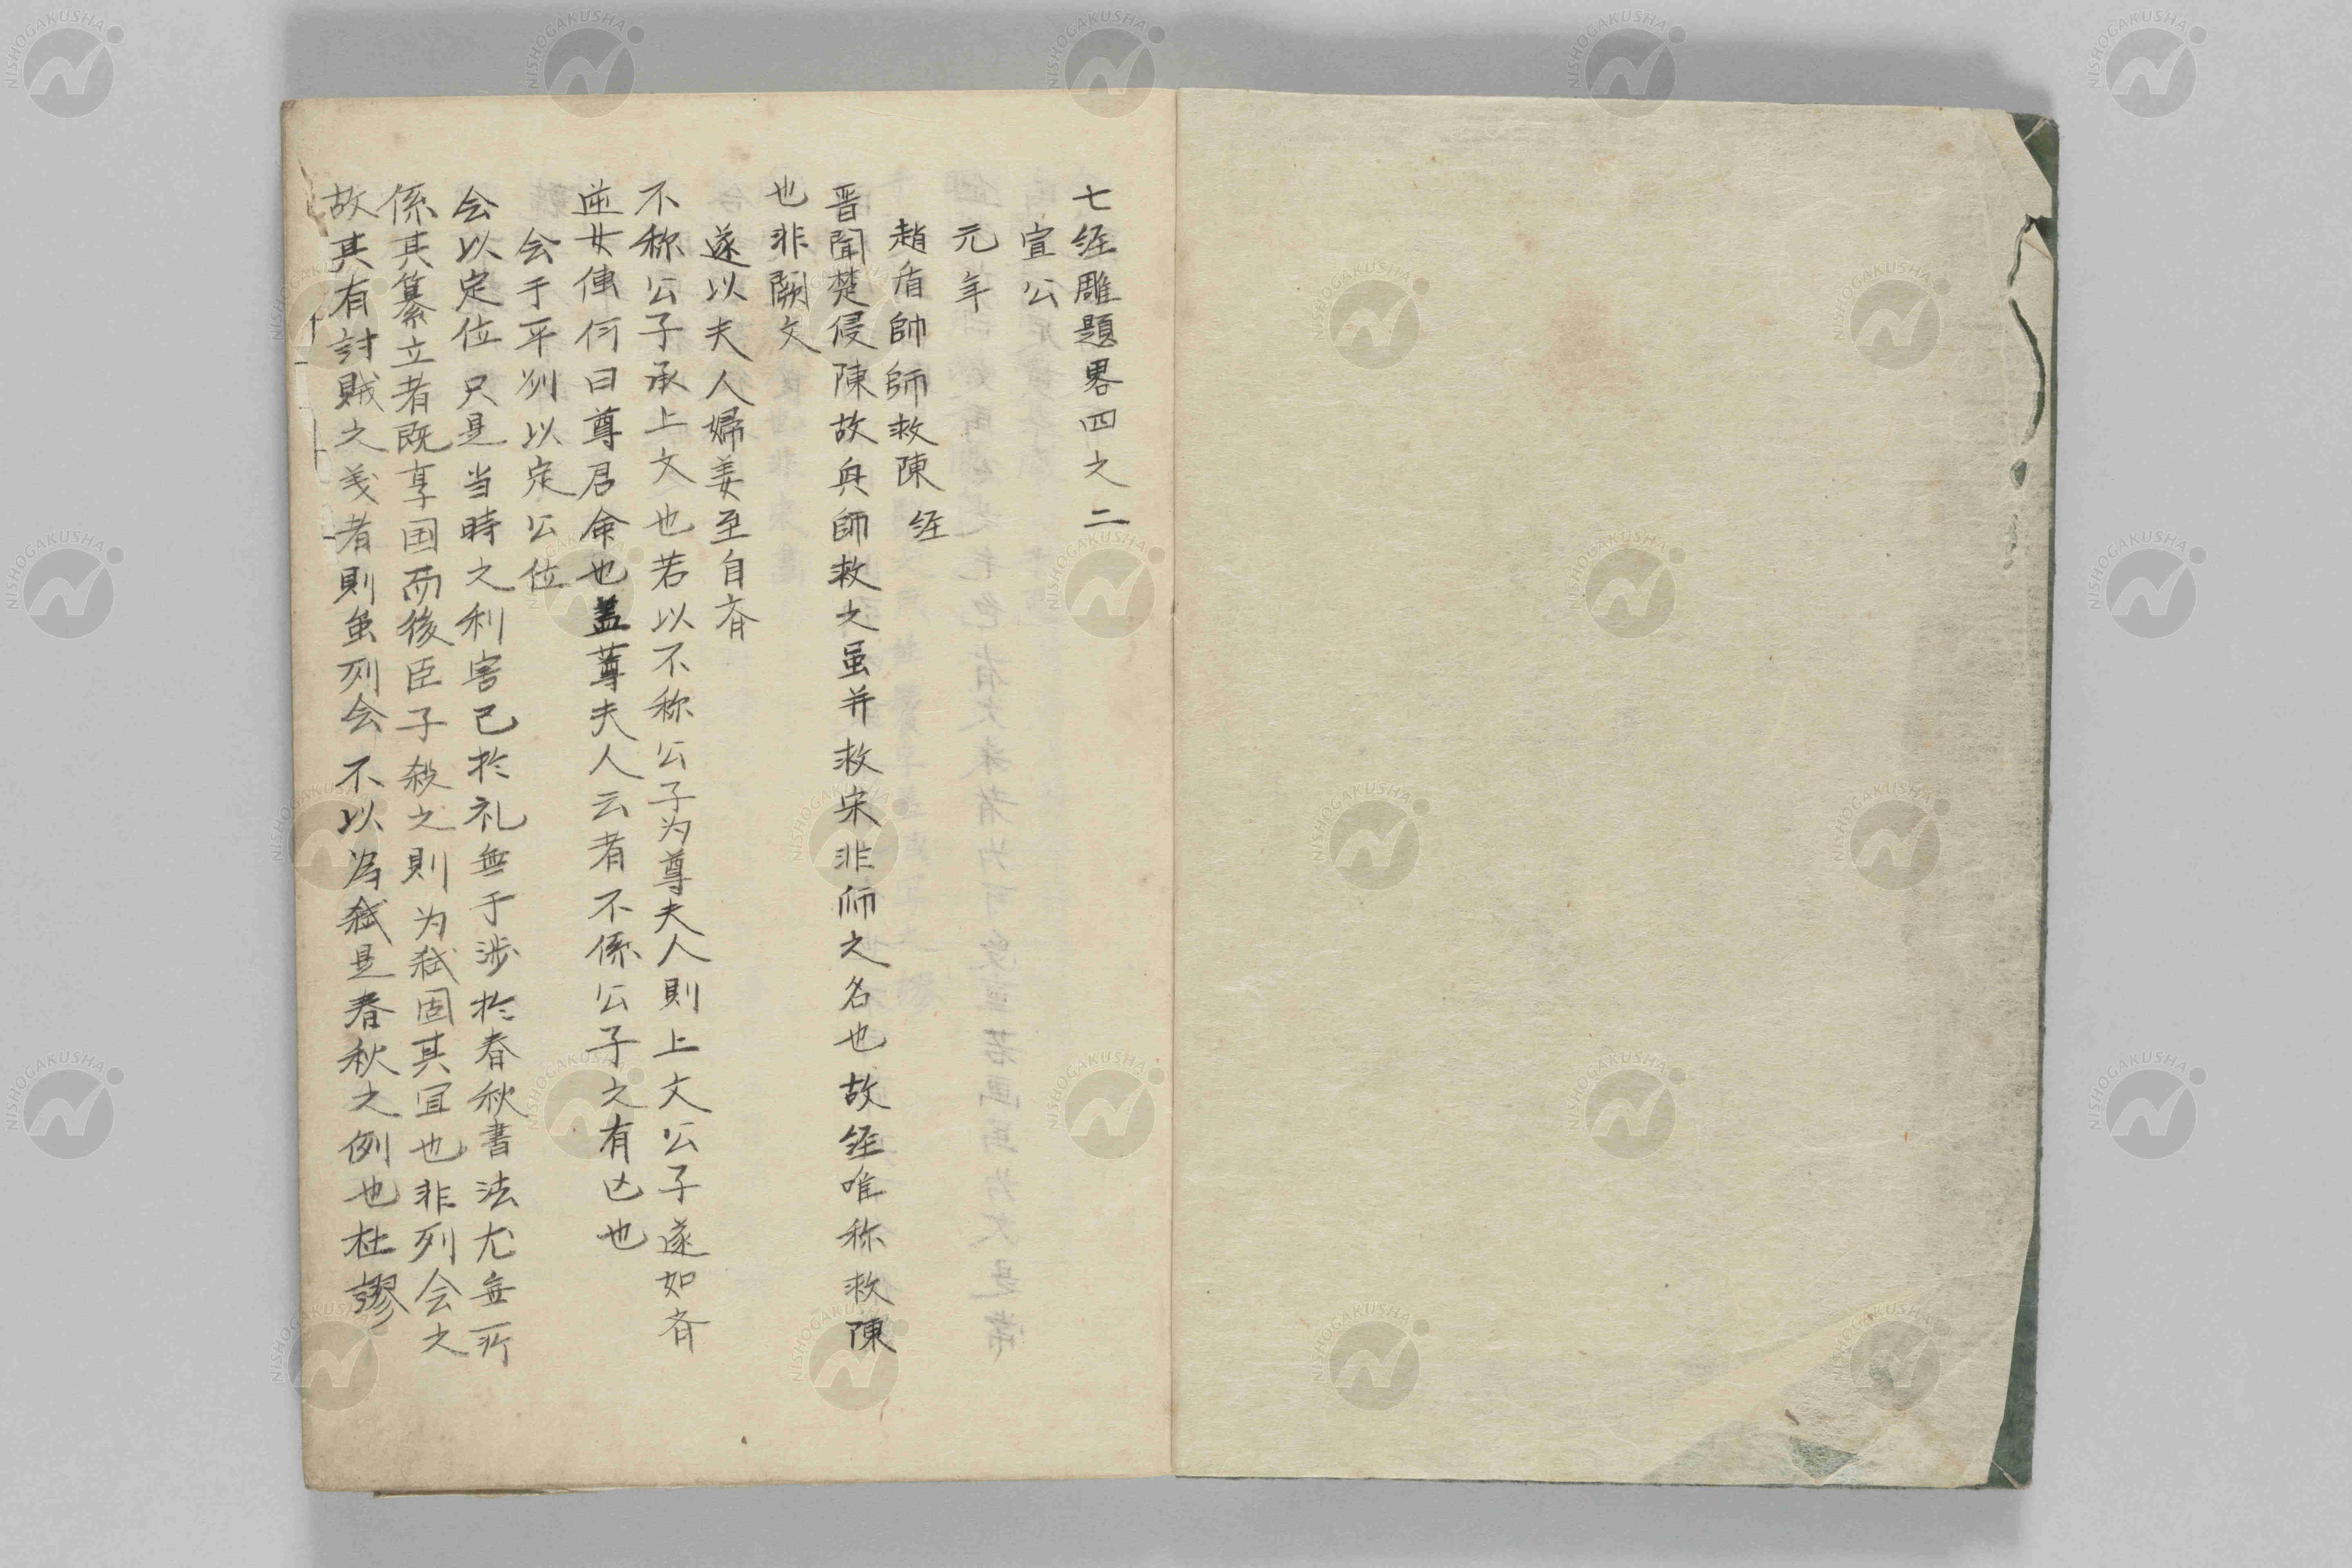 七経雕題畧四之二
宣公
元年
趙盾帥師救陳 経
晋聞楚侵陳故興師救之虽并救宋非师之名也故経唯称救陳
也非闕文
遂以夫人婦姜至自斉
不称公子承上文也若以不称公子为尊夫人則上文公子遂如斉
逆女傳何曰尊君命也蓋尊夫人云者不係公子之有亡也
会于平州以定公位
会以定位只是当時之利害已於礼無干渉於春秋書法尤無所
係其纂立者既享国而後臣子殺之則为弑固其宜也非列会之
故其有討賊之義者則虽列会不以為弑是春秋之例也杜謬
NISHOGAKUSHA